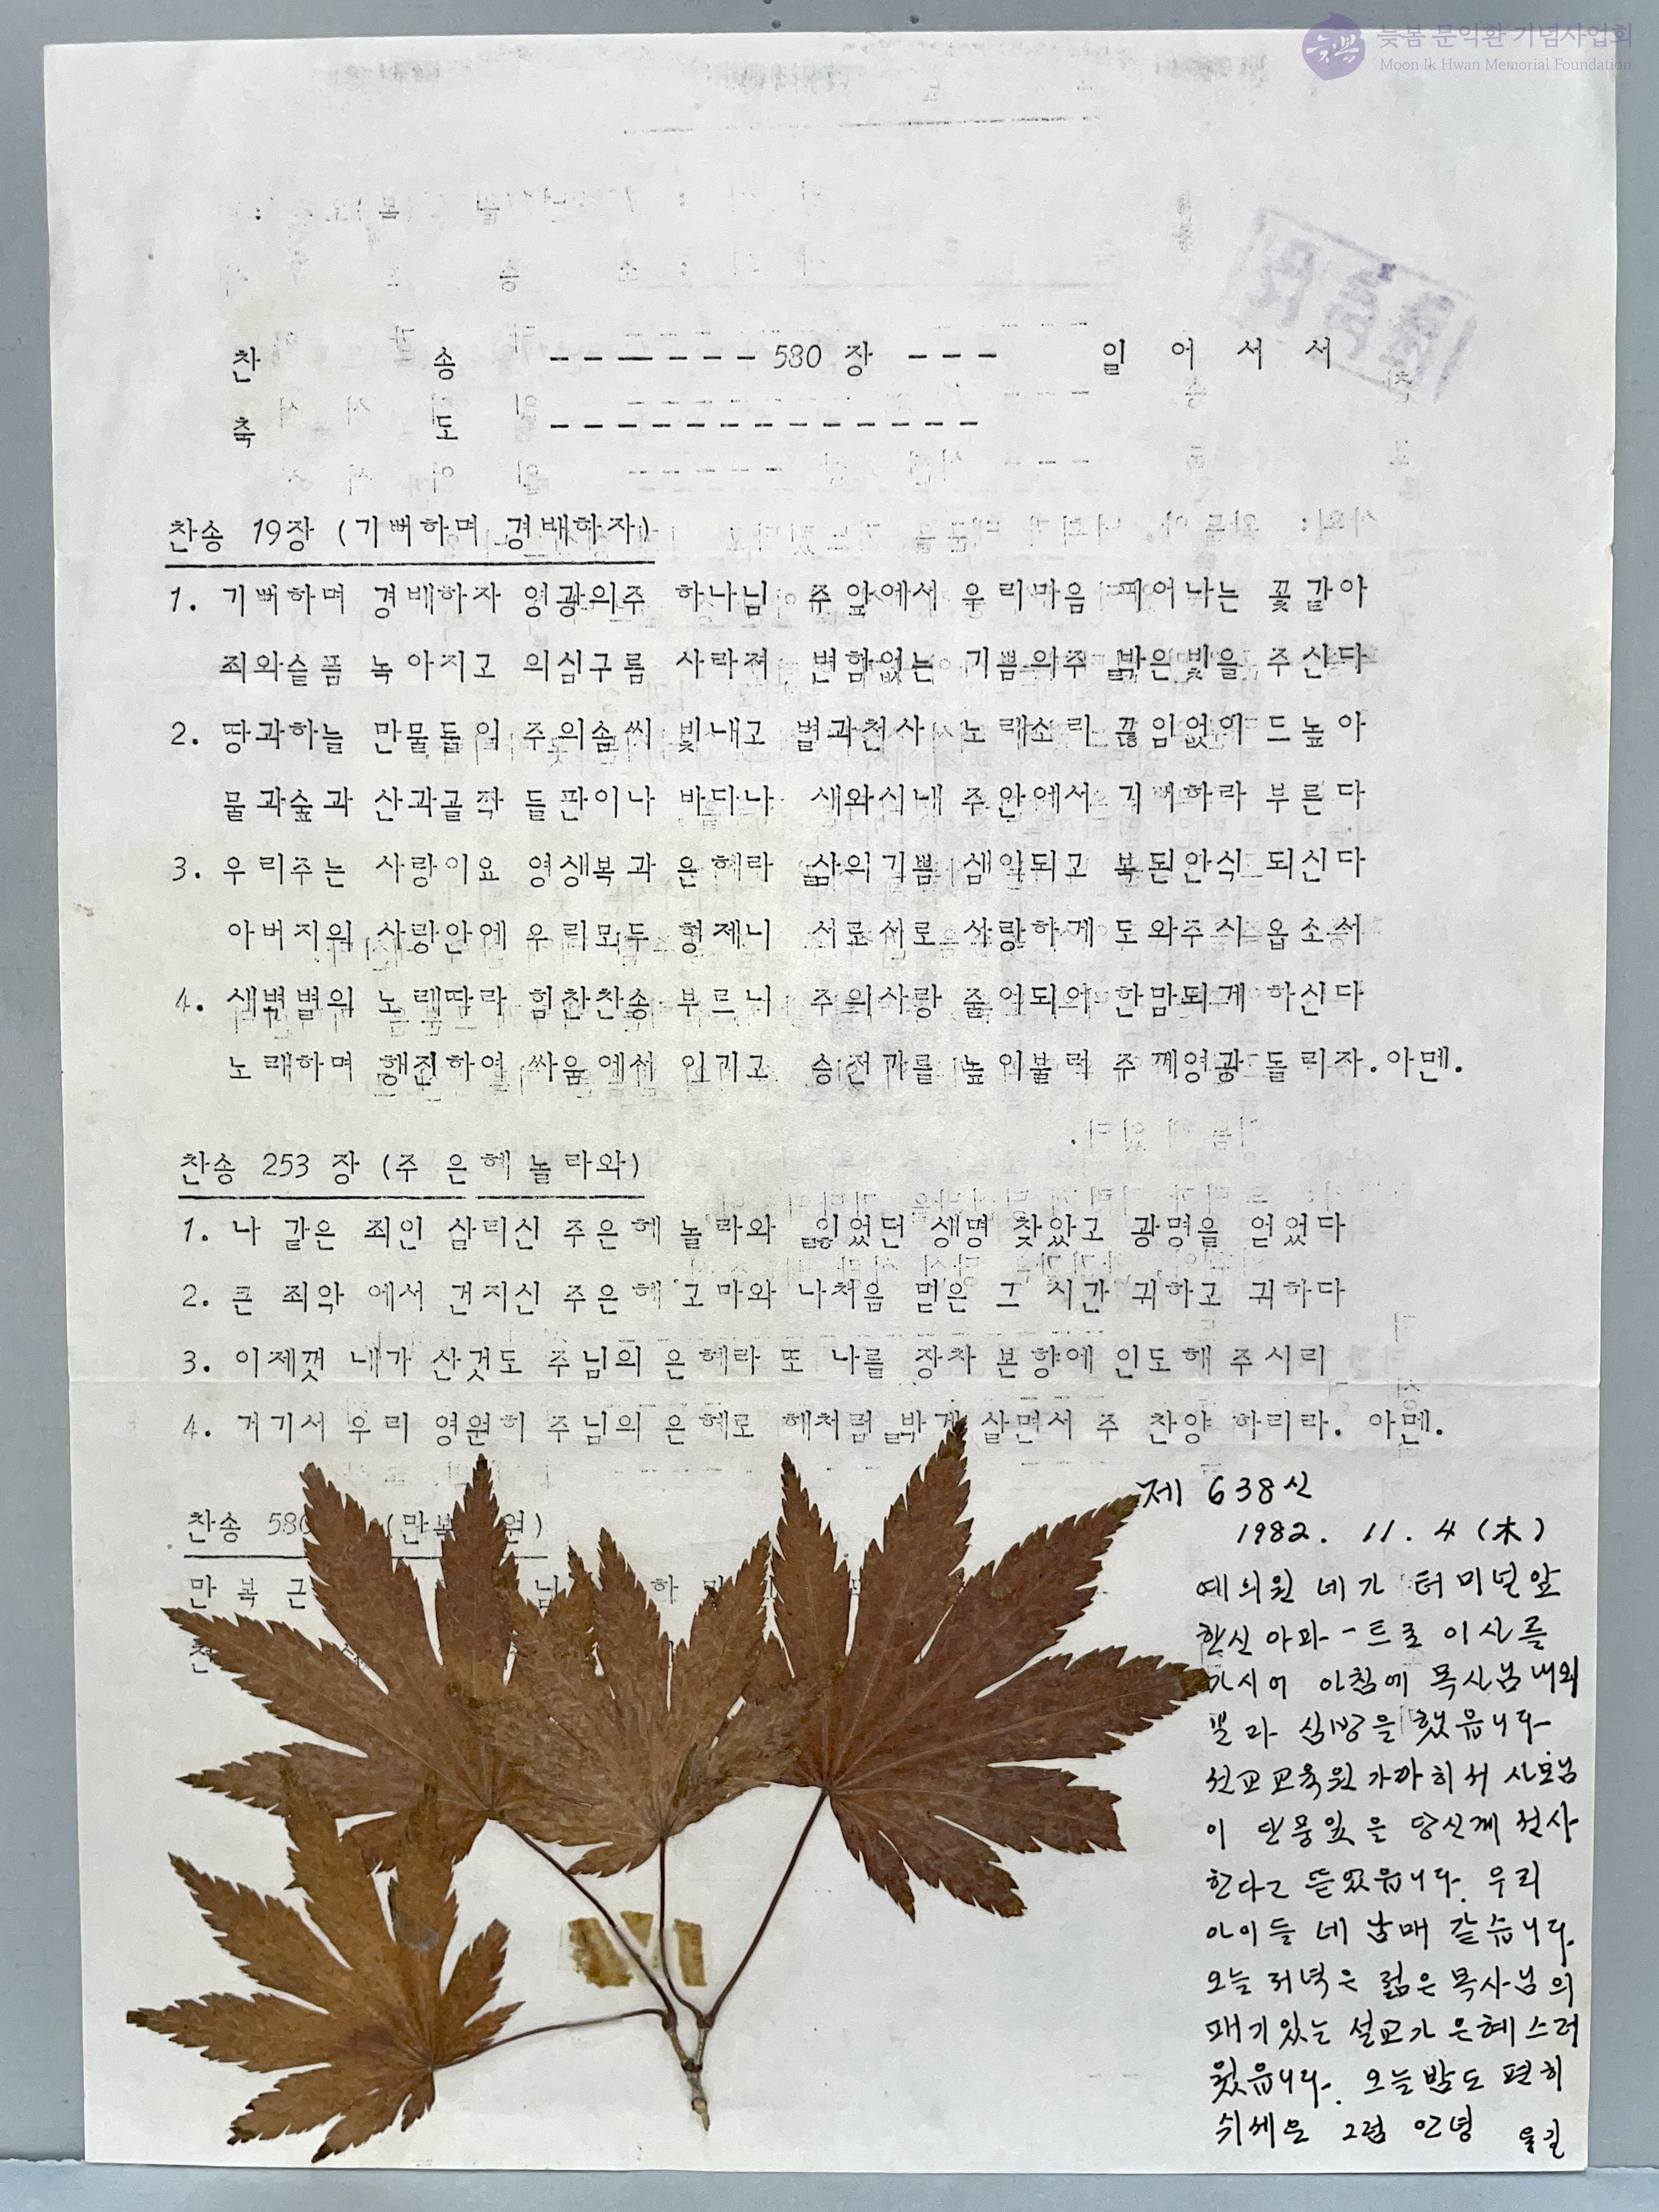 늦봄 문익환 기념사업회
Moon Ik Hwan Memorial Foundation
찬 송 ------- 580 장 --- 일 어 서 서
축 도 -------------
찬송 19장 (기뻐하며 경배하자)
1. 기뻐하며 경배하자 영광의주 하나님 주앞에서 우리마음 피어나는 꽃같아
죄와슬픔 녹아지고 의심구름 사라져 변함없는 기쁨의주 밝은빛을 주신다
2. 땅과하늘 만물들이 주의솜씨 빛내고 별과천사 노래소리 끊임없이 드높아
물과숲과 산과골짝 들판이나 바다나 새와시내 주안에서 기뻐하라 부른다
3. 우리주는 사랑이요 영생복과 은혜라 삶의기쁨 샘이되고 복된안식 되신다
아버지의 사랑안에 우리모두 형제니 서로서로 사랑하게 도와주시옵소서
4. 새벽별의 노래따라 힘찬찬송 부르니 주의사랑 줄이되어 한맘되게 하신다
노래하며 행진하여 싸움에서 이기고 승전가를 높이불러 주께영광 돌리자.아멘.
찬송 253 장 (주 은혜 놀라와)
1. 나 같은 죄인 살리신 주은혜 놀라와 잃었던 생명 찾았고 광명을 얻었다
2. 큰 죄악 에서 건지신 주은혜 고마와 나처음 믿은 그 시간 귀하고 귀하다
3. 이제껏 내가 산것도 주님의 은혜라 또 나를 장차 본향에 인도해 주시리
4. 거기서 우리 영원히 주님의 은혜로 해처럼 밝게 살면서 주 찬양 하리라. 아멘.
찬송 580 (만복 원)
만 복 근 님 하
제 638신
1982. 11. 4 (木)
예의원 네가 터미널앞
한신 아파-트로 이사를
가시어 아침에 목사님 내외
분과 심방을 했읍니다.
선교교육원 가까히서 사모님
이 단풍잎을 당신께 전사
한다고 뜯었읍니다. 우리
아이들 네 남매 같습니다.
오늘 저녁은 젊은 목사님의
패기있는 설교가 은혜스러
웠읍니다. 오늘밤도 편히
쉬세요 그럼 안녕 용길